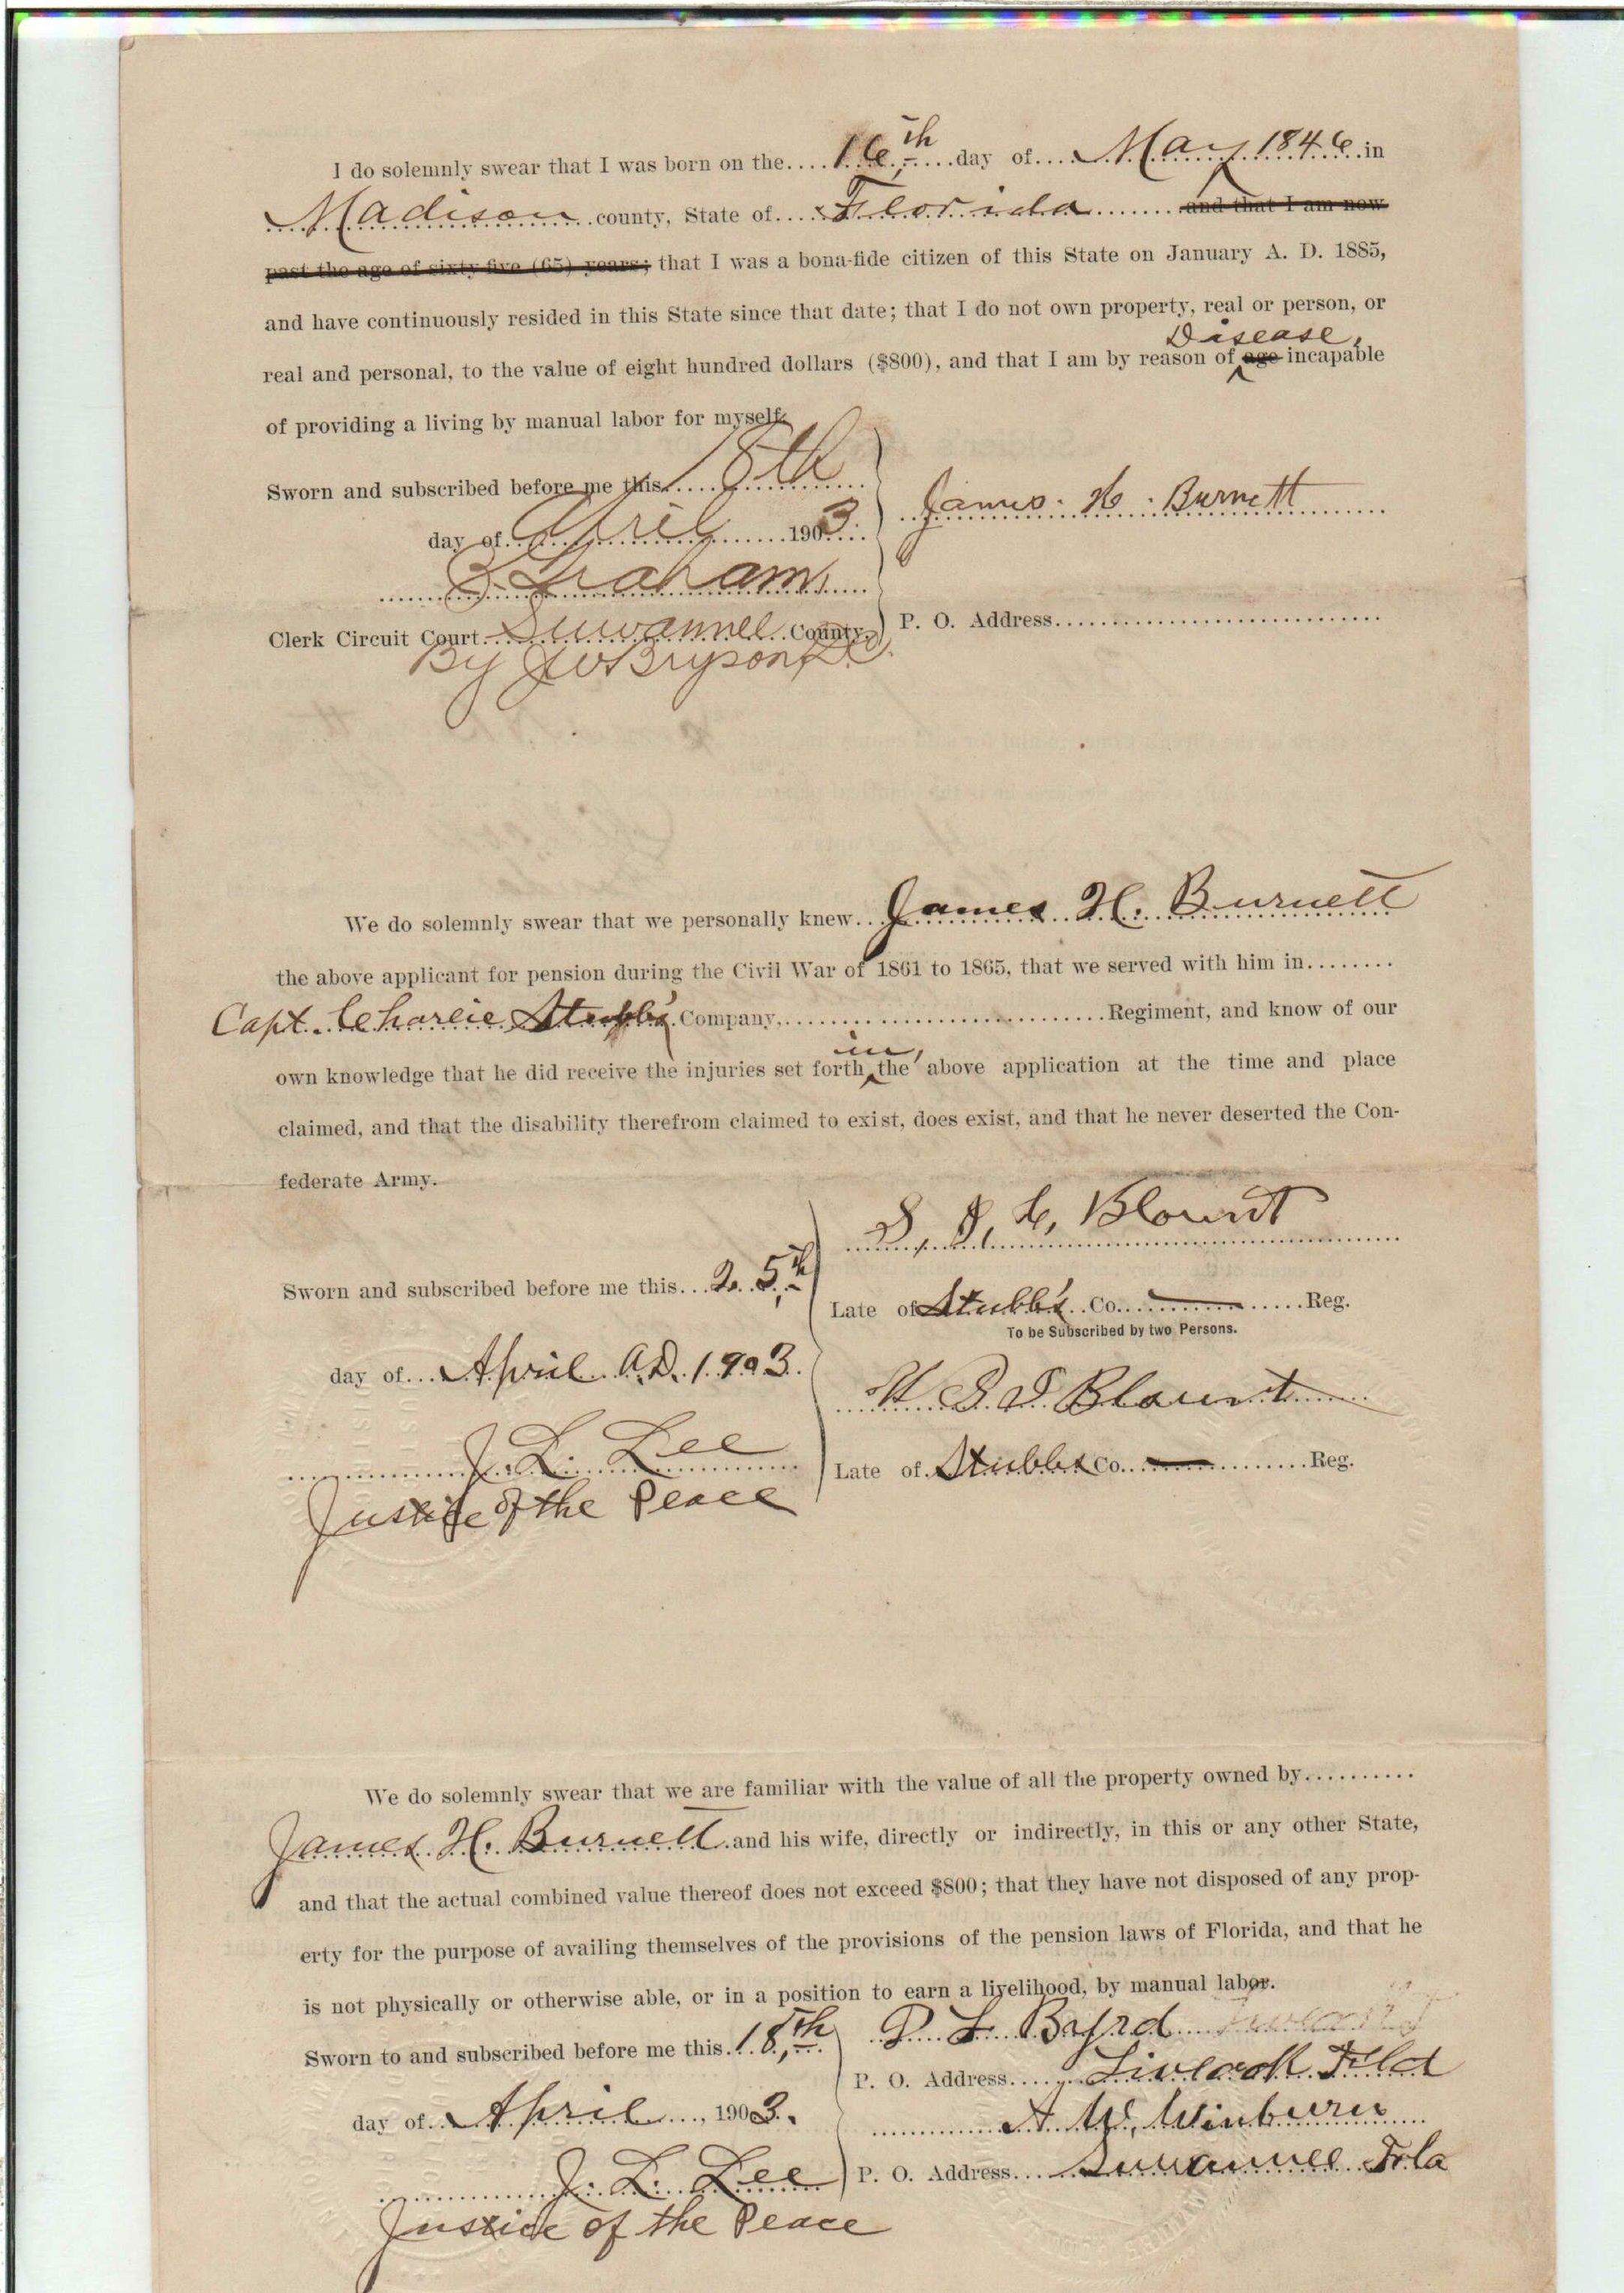 I do solemnly swear that I was born on the 16th day of May 1846 in
Madison county, State of Florida and that I am now
past the age of sixty-five (65) years; that I was a bona-fide citizen of this State on January A. D. 1885,
and have continuously resided in this State since that date; that I do not own property, real or person, or
Disease,
real and personal, to the value of eight hundred dollars ($800), and that I am by reason of age incapable
of providing a living by manual labor for myself.
Sworn and subscribed before me this 18th
James H. Burnett
day of April 1903
Graham
Clerk Circuit Court Suwannee County,
P. O. Address
By J W Bryson D.C.
We do solemnly swear that we personally knew James H. Burnett
the above applicant for pension during the Civil War of 1861 to 1865, that we served with him in
Capt. Charlie Stubbs' Company, Regiment, and know of our
in,
own knowledge that he did receive the injuries set forth the above application at the time and place
claimed, and that the disability therefrom claimed to exist, does exist, and that he never deserted the Con-
federate Army.
Blount
Sworn and subscribed before me this 25th
Late of Stubb's Co. Reg.
To be Subscribed by two Persons.
day of April A.D. 1903.
Blount
J. L. Lee
Late of Stubbs Co. Reg.
Justice of the Peace
We do solemnly swear that we are familiar with the value of all the property owned by
James H. Burnett and his wife, directly or indirectly, in this or any other State,
and that the actual combined value thereof does not exceed $800; that they have not disposed of any prop-
erty for the purpose of availing themselves of the provisions of the pension laws of Florida, and that he
is not physically or otherwise able, or in a position to earn a livelihood, by manual labor.
Sworn to and subscribed before me this 18th
Byrd
P. O. Address Liveoak Fld
day of April, 1903.
A. W. Winburn
J. L. Lee
P. O. Address Suwannee Fla
Justice of the Peace